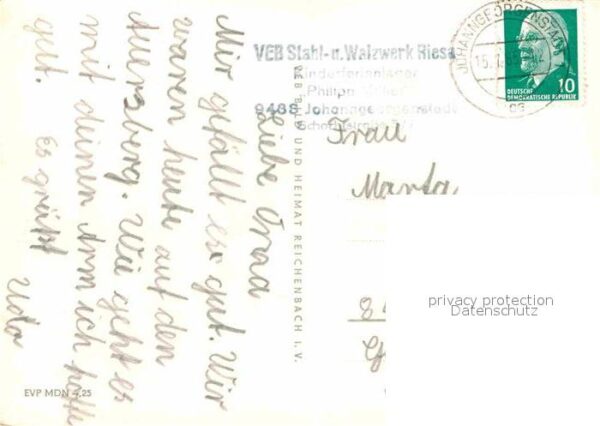 Liebe Oma
Mir gefällt es gut. Wir
waren heute auf den
Auersberg. Wie geht es
mit deinen Arm ich hoffe
gut. Es grüßt
Udo
VEB Stahl- u. Walzwerk Riesa
Kinderferienlager
"Philipp
9438 Johanngeorgenstadt
JOHANNGEORGENSTADT
15.
DEUTSCHE
DEMOKRATISCHE REPUBLIK
10
VEB BILD UND HEIMAT REICHENBACH I. V.
Frau
Marta
privacy protection
Datenschutz
EVP MDN 4,25